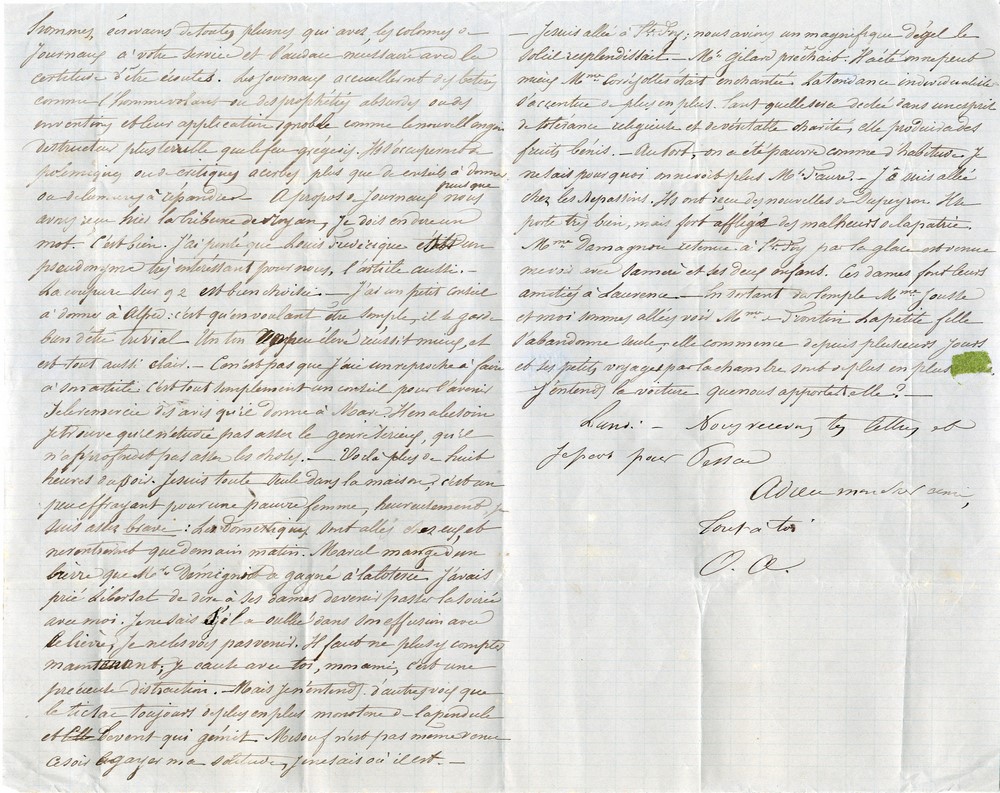 hommes, écrivains de toutes plumes qui avez, les colonnes de
Journaux à votre service et l'audace nécessaire avec la
certitude d'être écoutés. Les Journaux accueillent des bêtises
comme l'homme volant ou des prophéties absurdes ou des
inventions et leur application ignoble comme le nouvel engin
destructeur plus terrible que le feu grégeois. Ils s'occupent de
polémiques ou de critiques acerbes plus que de conseils à donner
ou de lumières à répandre. A propos de Journaux puisque nous
avons reçu hier la tribune de Royan, Je dois en dire un
mot. C'est bien. J'ai pensé que Louis Frédérique était un
pseudonyme très intéressant pour nous, l'article aussi. —
La coupure sur 92 est bien choisie. — J'ai un petit conseil
à donner à Alfred: c'est qu'en voulant être simple, il se garde
bien d'être trivial. Un ton un peu élevé réussit mieux, et
est tout aussi clair. — Ce n'est pas que j'aie un reproche à faire
à son article. C'est tout simplement un conseil pour l'avenir
Je le remercie des avis qu'il donne à Marc. Il en a besoin
Je trouve qu'il n'étudie pas assez le genre sérieux, qu'il
n'approfondit pas assez les choses. — Voilà plus de huit
heures du soir. Je suis toute seule dans la maison; c'est un
peu effrayant pour une pauvre femme, heureusement, je
suis assez brave: Les Domestiques sont allés chez eux, et
ne rentreront que demain matin. Marcel mange d'un
lièvre que Mr Démignot a gagné à la loterie. J'avais
prié Libersat de dire à ses dames de venir passer la soirée
avec moi. Je ne sais s'il a oublié dans son effusion avec
le lièvre, Je ne les vois pas venir. Il faut ne plus y compter
maintenant, Je cause avec toi, mon ami, c'est une
précieuse distraction. — Mais Je n'entends d'autres voix que
le tictac toujours de plus en plus monotone de la pendule
et le vent qui gémit. Misouf n'est pas même venu
ce soir égayer ma solitude, Je ne sais où il est. —
— Je suis allée à Ste Foy; nous avions un magnifique dégel le
soleil resplendissait. — Mr Gilard prêchait. Il a été on ne peut
mieux Mme était enchantée. La tendance individualiste
s'accentue de plus en plus. Tant qu'elle sera dictée dans un esprit
de tolérance religieuse et de véritable charité, elle produira des
fruits bénis. — Au fort, on a été pauvre comme d'habitude. Je
ne sais pourquoi on ne voit plus Mr Daure. — J'ai suis allée
chez les Repassins. Ils ont reçu des nouvelles de Dupeyron. Il se
porte très bien, mais fort affligé des malheurs de la patrie.
Mme Damagnou retenue à Ste Foy par la glace est venue
me voir avec sa mère et ses deux enfants. Ces dames font leurs
amitiés à Laurence. — En sortant du temple Mme Jousse
et moi sommes allées voir Mme de Frontin La petite fille
s'abandonne seule, elle commence depuis plusieurs jours
et ses petits voyages par la chambre sont de plus en plus
J'entends la voiture que nous apporte t-elle? —
Lundi — Nous recevons tes lettres et
Je pars pour Pessac
Adieu mon cher ami,
Tout à toi
O. A.